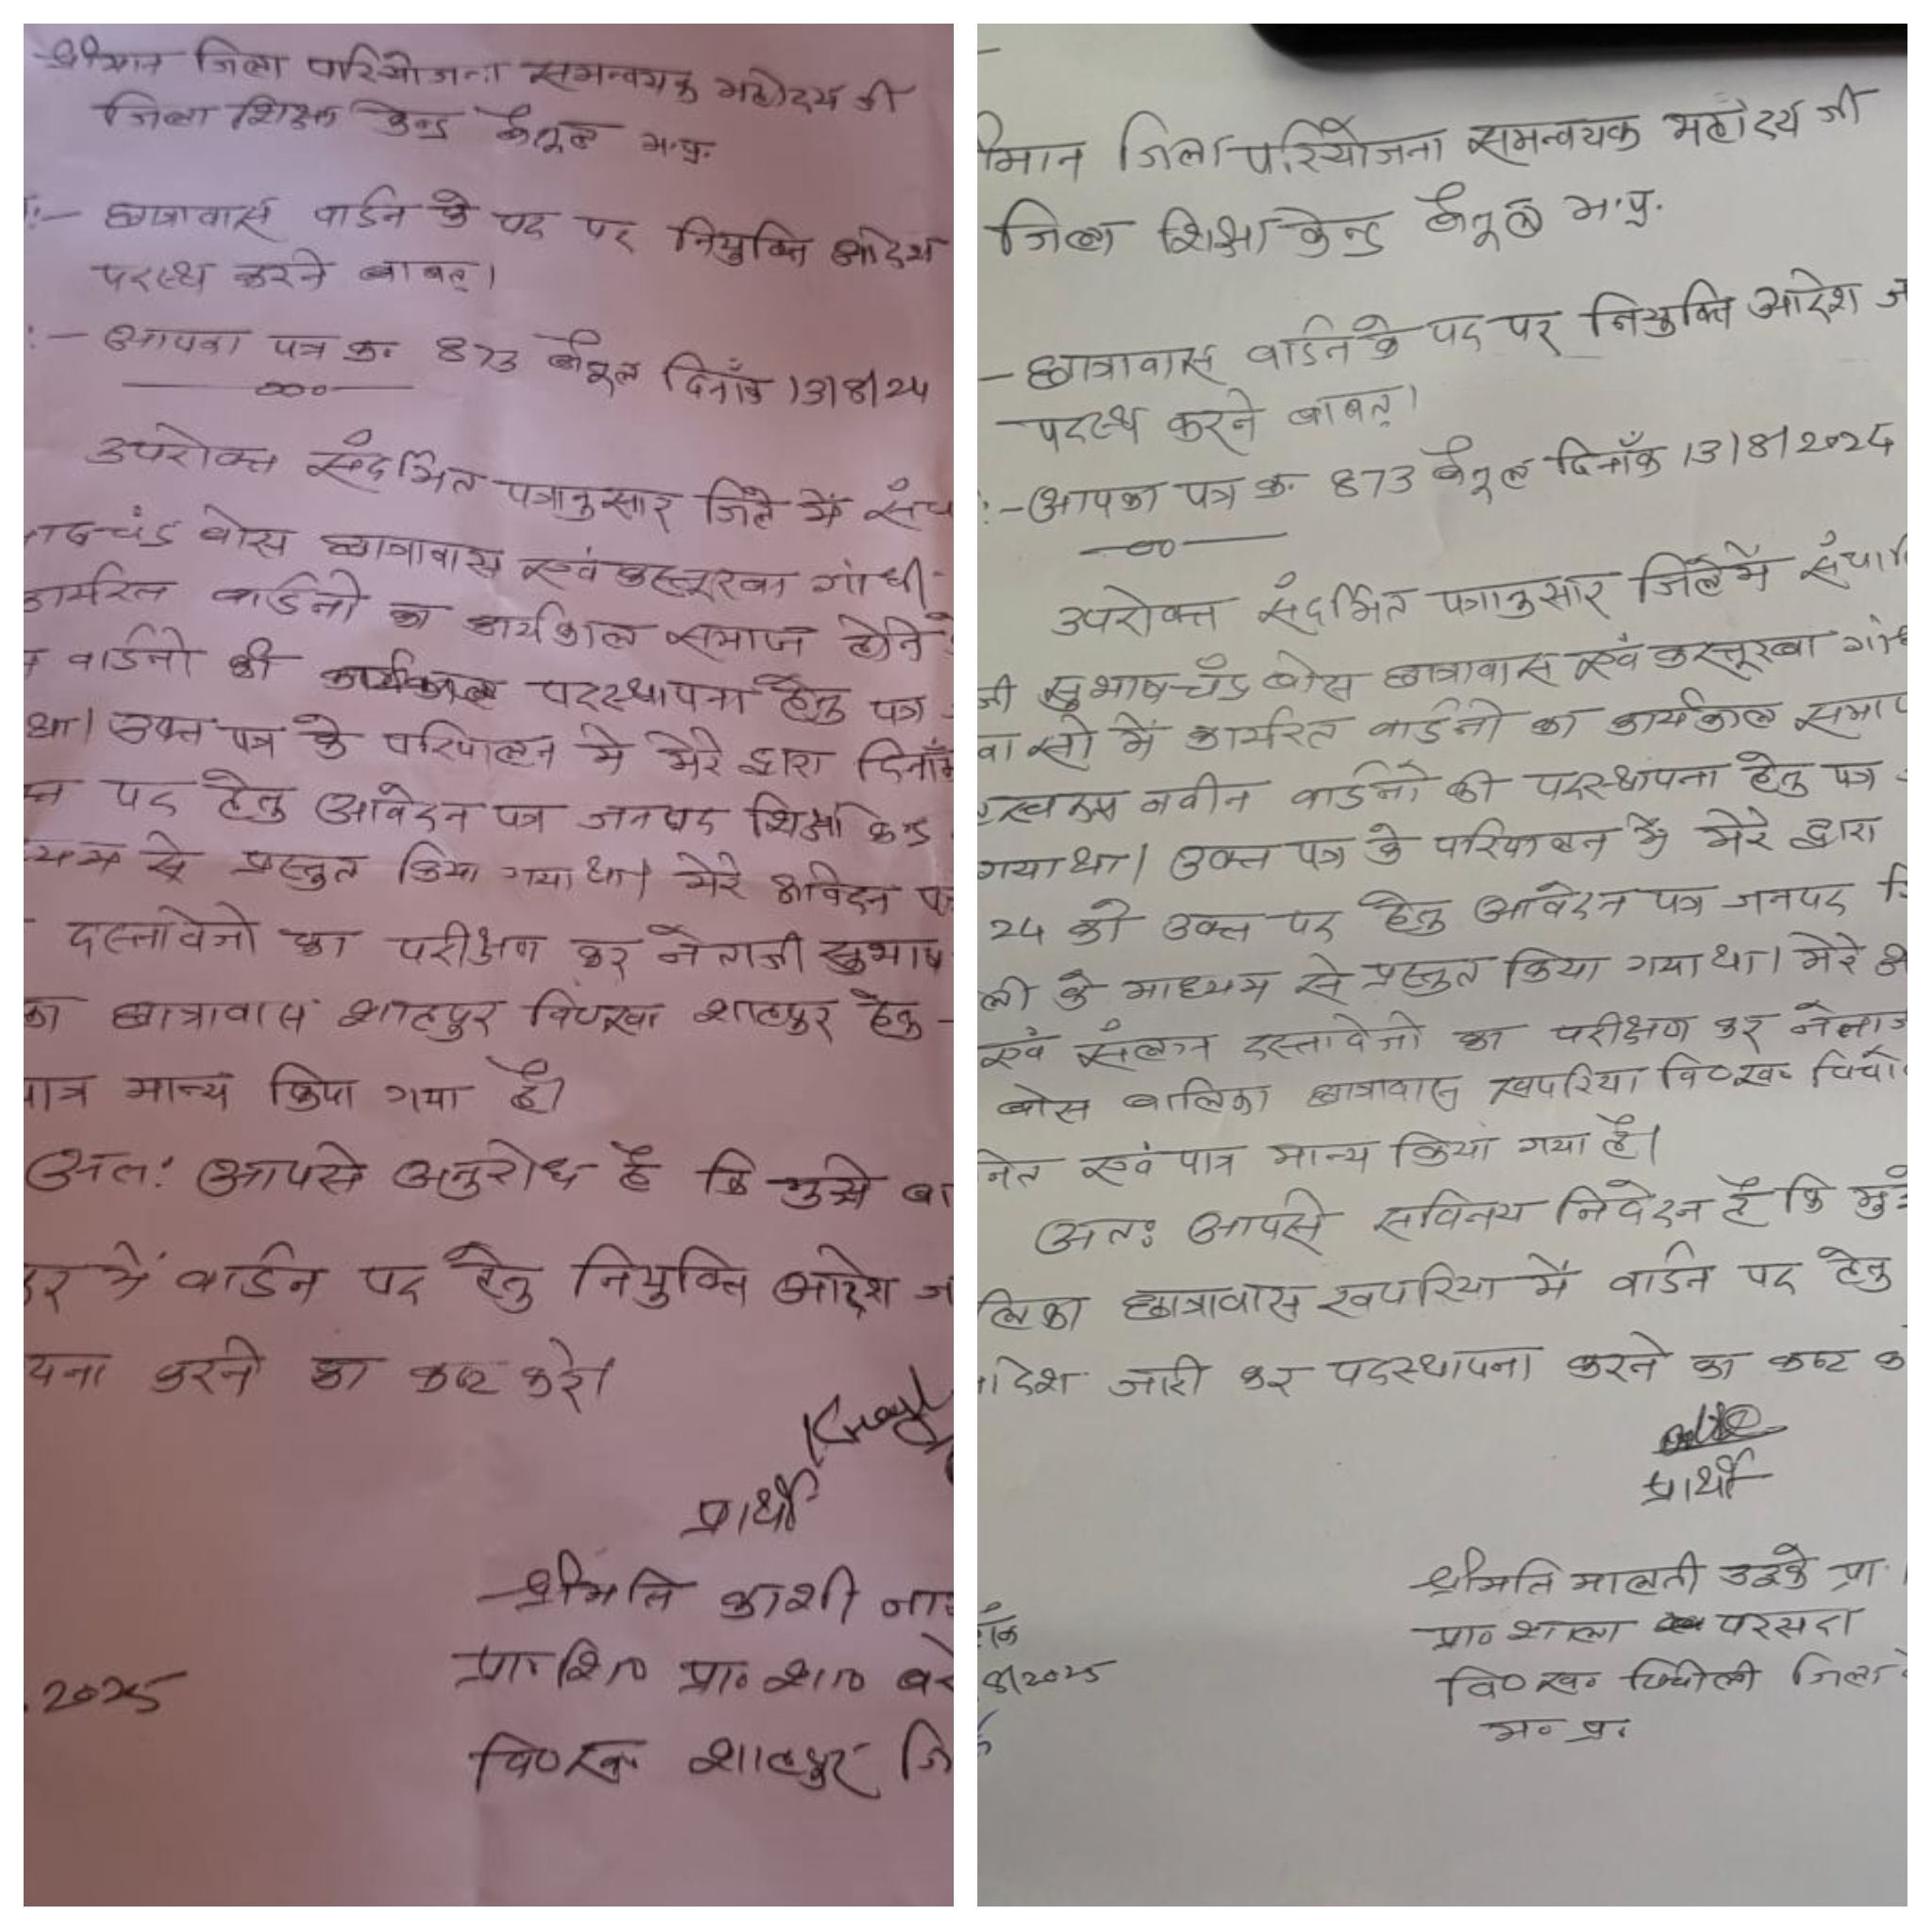 श्रीमान जिला परियोजना समन्वयक महोदय जी
जिला शिक्षा केन्द्र बैतूल म.प्र.
:- छात्रावास वार्डन के पद पर नियुक्ति आदेश
पदस्थ करने बाबत्।
:- आपका पत्र क्र. 873 बैतूल दिनाँक 13/8/24
उपरोक्त संदर्भित पत्रानुसार जिले में संच
चंद्र बोस छात्रावास एवं कस्तूरबा गांधी
कार्यरत वार्डनो का कार्यकाल समाप्त होने
वार्डनो की पदस्थापना हेतु पत्र
था। उक्त पत्र के परिपालन में मेरे द्वारा दिनाँक
पद हेतु आवेदन पत्र जनपद शिक्षा केन्द्र
से प्रस्तुत किया गया था। मेरे आवेदन
दस्तावेजो का परीक्षण कर नेताजी सुभाष
का छात्रावास शाहपुर वि०ख० शाहपुर हेतु
पात्र मान्य किया गया है।
अतः आपसे अनुरोध है कि मुझे बा
में वार्डन पद हेतु नियुक्ति आदेश ज
करने का कष्ट करे।
प्रार्थी
श्रीमति काशी
प्रा० शि० प्रा० शा०
.2025
वि०ख० शाहपुर जि
मान जिला परियोजना समन्वयक महोदय जी
जिला शिक्षा केन्द्र बैतूल म.प्र.
- छात्रावास वार्डन के पद पर नियुक्ति आदेश ज
पदस्थ करने बाबत्।
:- आपका पत्र क्र. 873 बैतूल दिनाँक 13/8/2024
उपरोक्त संदर्भित पत्रानुसार जिले में संचालि
जी सुभाष चंद्र बोस छात्रावास एवं कस्तूरबा गांध
वासो में कार्यरत वार्डनो का कार्यकाल समाप
नवीन वार्डनो की पदस्थापना हेतु पत्र
गया था। उक्त पत्र के परिपालन में मेरे द्वारा
24 को उक्त पद हेतु आवेदन पत्र जनपद शि
ली के माध्यम से प्रस्तुत किया गया था। मेरे आ
एवं संलग्न दस्तावेजो का परीक्षण कर नेताज
बोस बालिका छात्रावास खपरिया वि०ख० चिचो
एवं पात्र मान्य किया गया है।
अतः आपसे सविनय निवेदन है कि मु
लिका छात्रावास खपरिया में वार्डन पद हेतु
देश जारी कर पदस्थापना करने का कष्ट क
प्रार्थी
श्रीमति मालती उइके प्रा.
प्रा० शाला परसदा
8/2025
वि० ख० चिचोली जिला
म० प्र.